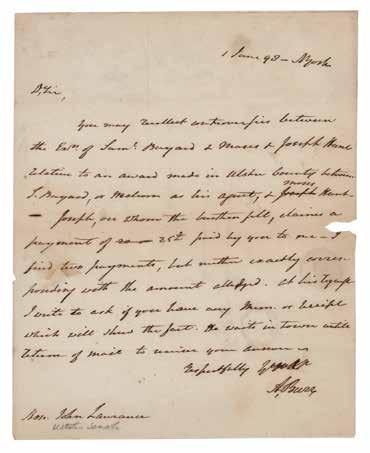 1 June 98 – NYork
D, Sir,
You may recollect controversies between
the Exrs of Saml. Bayard & Moses & Joseph Hunt
relative to an award made in Ulster County between
S. Bayard, or as his agent, & moses Joseph Hunt
– Joseph, on whom the burthen fell, claims a
payment of 25£ paid by you to me – I
find two payments, but neither exactly corres
ponding with the amount alledged. At his request
I write to ask if you have any Mem. or receipt
which will shew the fact. He waits in town until
return of mail to receive your answer
Respectfully
A, Burr
Hon. John Laurance